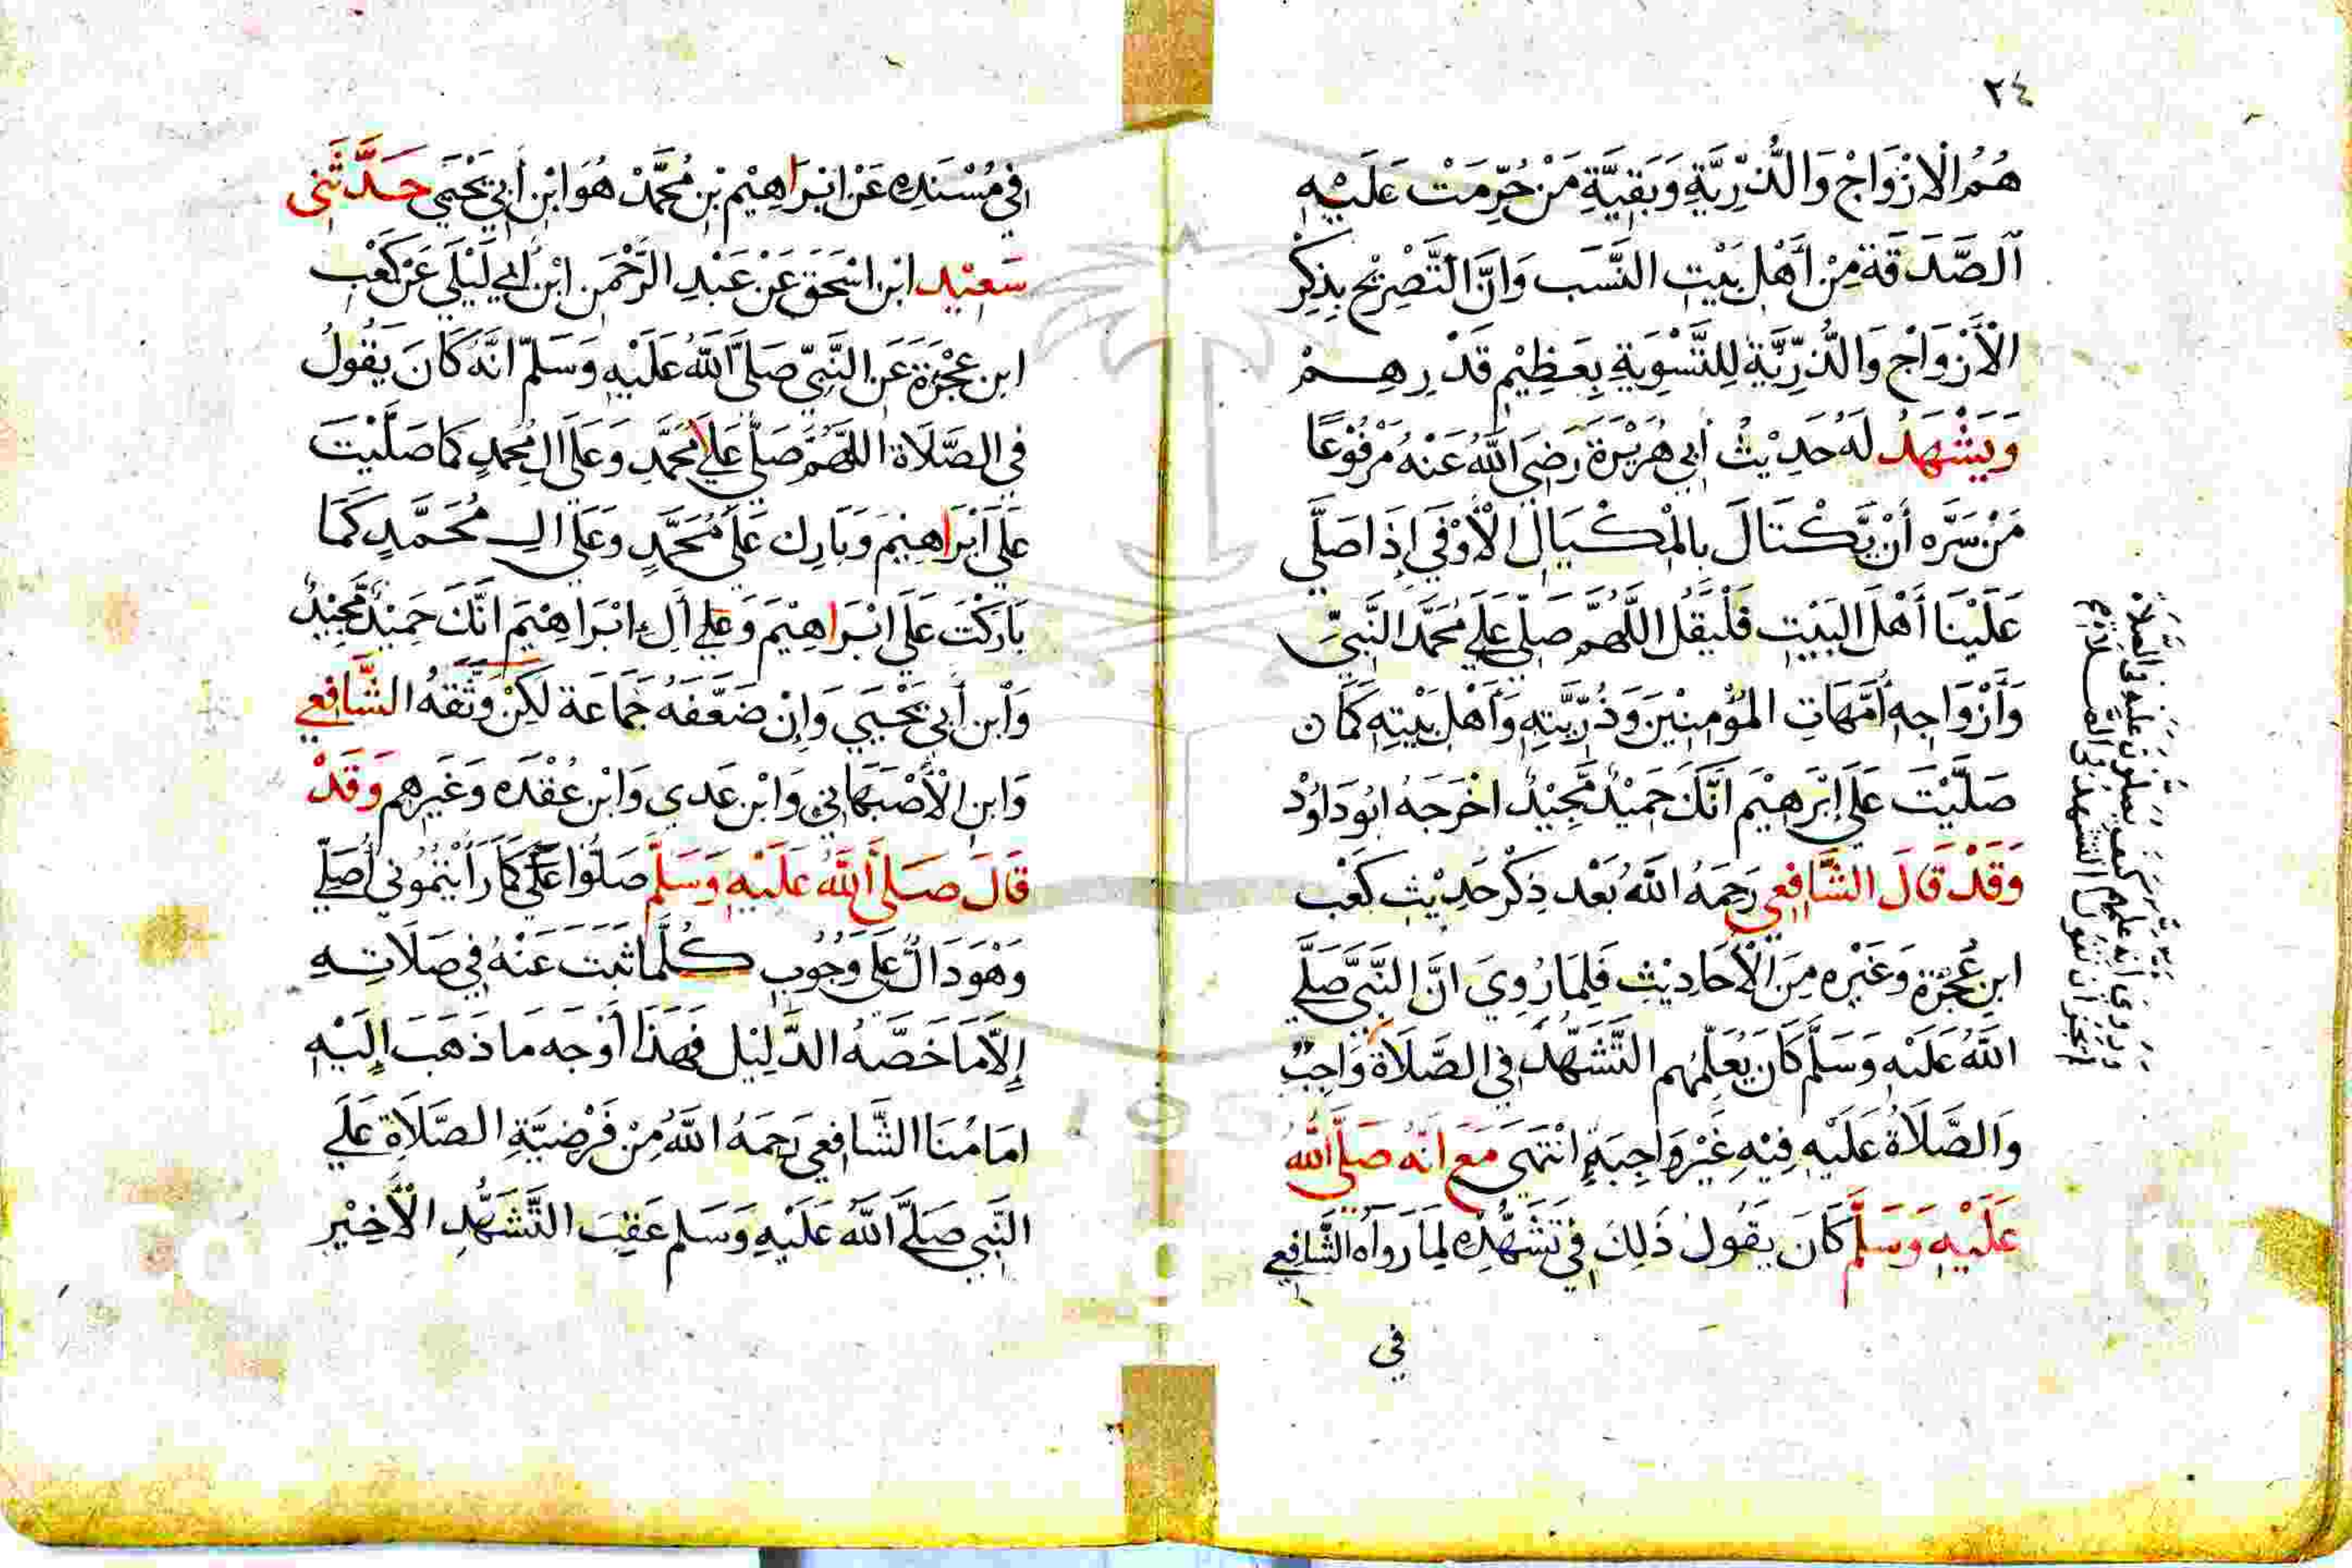 ٢٤
هُمُ الْازْوَاجْ وَالذُّرِّيَّةِ وَبَقِيَّةِ مَنْ حُرِّمَتْ عَلَيْهِ
الصَّدَقَة مِنْ أَهْلِ بَيْتِ النَّسَب وَانَّ التَّصْرِيْح بِذِكْرِ
الْأَزْوَاجْ وَالذُّرِّيَّةِ لِلتَّسْوِيَةِ بِعَظِيْمِ قَدْرِهِمْ
وَيَشْهَدُ لَهُ حَدِيْثُ أبِي هُرَيْرَةَ رَضِيَ اللهُ عَنْهُ مَرْفُوْعًا
مَنْ سَرَّه أَنْ يَّكْتَالَ بِالْمِكْيَالِ الْأَوْفَي إِذَا صَلَّي
عَلَيْنَا أَهْلَ البَيْتِ فَلْيَقُلِ اللَّهُمَّ صَلِّي عَلَي مُحَمَّدَ النَّبِيِّ
وَأَزْوَاجِهِ أُمَّهَاتِ المُؤْمِنِيْنَ وَذُرِّيَّتِهِ وَأَهْلِ بَيْتِهِ كَمَا ن
صَلَّيْتَ عَلَي إِبْرَهِيْم انَّكَ حَمِيْدٌ مَّجِيْدٌ اخْرَجَهُ ابُودَاوُدْ
وَقَدْ قَالَ الشَّافِعِي رَحِمَهُ اللهُ بَعْد ذِكْر حَدِيْثِ كَعْب
ابنِ عُجْرَة وَغَيْرِه مِنَ الْأَحَادِيْثِ فَلِمَا رُوِيَ انَّ النَّبِيَّ صَلَّي
اللهُ عَلَيْهِ وَسَلَّمَ كَانَ يُعَلِّمُهُم التَّشَهُّدَ فِي الصَّلَاةِ وَاجِبٌ
وَالصَّلَاةُ عَلَيْهِ فِيْهِ غَيْر وَاجِبَةٍ انْتَهَى مَعَ انَّهُ صَلَّي اللهُ
عَلَيْهِ وَسَلَّمَ كَانَ يَقُولُ ذَلِكَ فِي تَشَهُّدِه لِمَا رَوَاه الشَّافِعِي
فِي
وَرُوِيَ أنه علمهم كيف يصلون عليه في الصلاة
لم يجز أن نقول التشهد في الصلاة
فِي مُسْنَدِه عَنْ ابْرَاهِيْم بْنِ مُحَمَّدْ هُوَ ابْنِ أَبِي يَحْيَي حَدَّثَنِي
سَعِيْد ابْنِ اسْحَقَ عَنْ عَبْدِ الرَّحْمَنِ ابْنِ أَبِي لَيْلَي عَنْ كَعْبِ
ابن عجْرَة عَنِ النَّبِيّ صَلَّي اللهُ عَلَيْهِ وَسَلَّمَ انَّهُ كَانَ يَقُولُ
فِي الصَّلَاة اللَّهُمَّ صَلِّي عَلَي مُحَمَّدٍ وَعَلَي الِ مُحمدٍ كَمَا صَلَّيْتَ
عَلَي ابْرَاهِيْمَ وَبَارِك عَلَي مُحَمَّدٍ وَعَلَي الِ مُحَمَّدٍ كَمَا
بَارَكْتَ عَلَي ابْرَاهِيْمَ وَعَلي أَلِ ابْرَاهِيْمَ انَّكَ حَمِيْدٌ مَّجِيْدٌ
وَابْن أَبِي يَحْيَي وَإِنْ ضَعَّفَهُ جَمَاعَة لَكِنْ وَثَّقَهُ الشَّافِعِي
وَابنِ الْأَصْبَهَانِي وَابْن عَدِي وَابْن عُقْدَه وَغَيرِهِم وَقَدْ
قَالَ صَلَي اللهُ عَلَيْهِ وَسَلَّمَ صَلُّوا عَلَيَّ كَمَا رَأَيْتُمُونِي أُصَلِّي
وَهْوَ دَالٌّ عَلَي وُجُوبِ كُلَّمَا ثَبَتَ عَنْهُ فِي صَلَاتِهِ
إِلَّا مَا خَصَّهُ الدَّلِيْل فَهَذَا أَوْجَه مَا ذَهَبَ إِلَيْهِ
امَامُنَا الشَّافِعِي رَحِمَهُ اللهُ مِنْ فَرْضِيَّةِ الصَّلَاةِ عَلَي
النَّبِي صَلَّي اللهُ عَلَيْهِ وَسَلم عَقِبَ التَّشَهُّدِ الْأَخِيْرِ